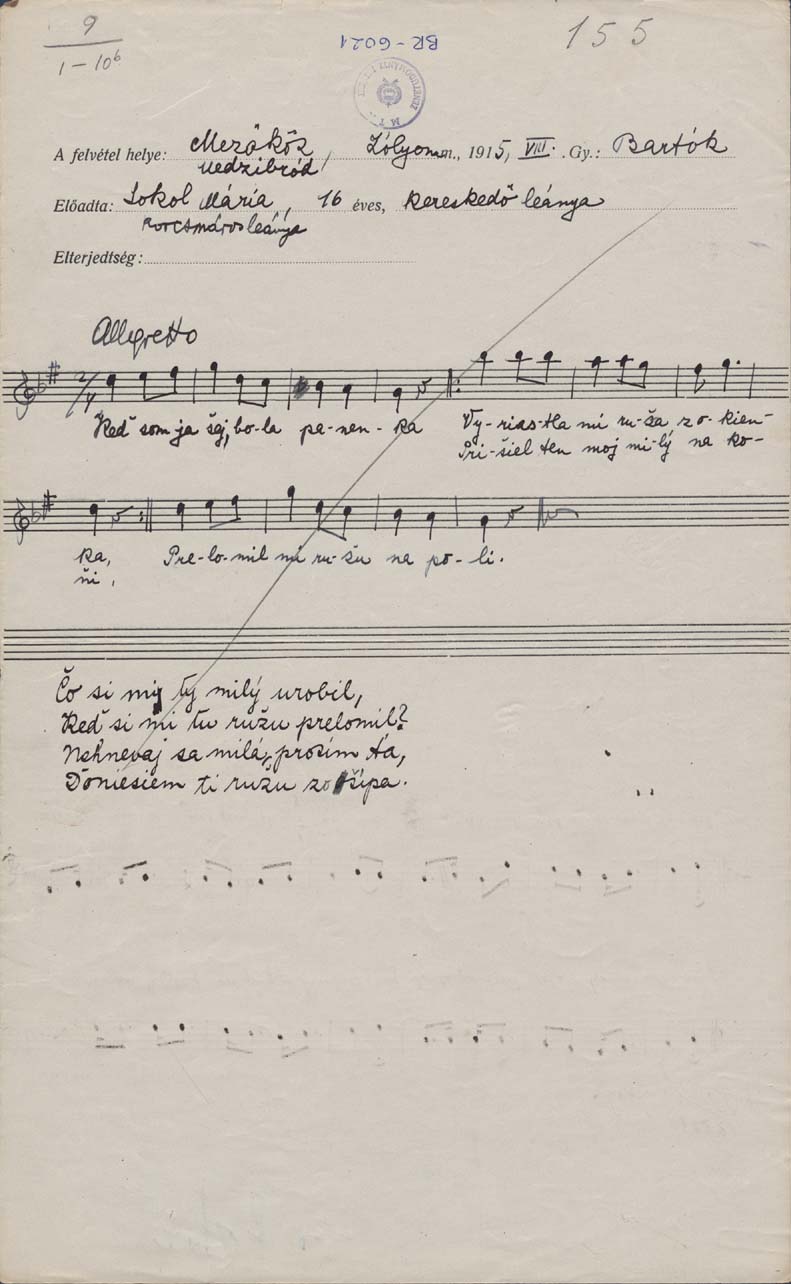 9
1–10b
BR-6021
155
A felvétel helye: Mezőköz, Zólyom m., 1915, VIII. Gy.: Bartók
Medzibród
Előadta: Sokol Mária, 16 éves, kereskedő leánya
korcsmáros leánya
Elterjedtség:
Allegretto
2/4
Keď som ja šej, bo-la pa-nen-ka Vy-rias-tla mi ru-ža z o-kien-
Pri-šiel ten moj mi-lý na ko-
ka, Pre-lo-mil mi ru-žu na po-li.
ňi,
Čo si mi ty milý urobil,
Keď si mi tu ružu prelomil?
Nehnevaj sa milá, prosím ťa,
Doniesiem ti ružu zo šípa.